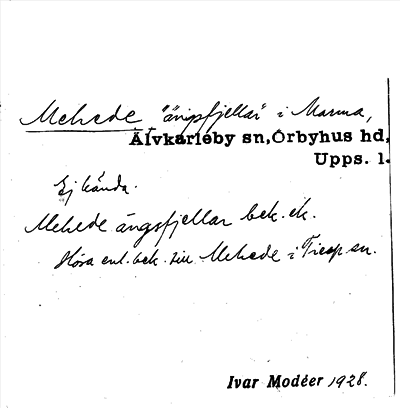 Mehede "ängsfjellar" i Marma,
Älvkarleby sn, Örbyhus hd,
Upps. l.
Ej kända.
Mehede ängsfjellar bek. ek.
Höra enl. bek. till Mehede i Tierp sn.
Ivar Modéer 1928.